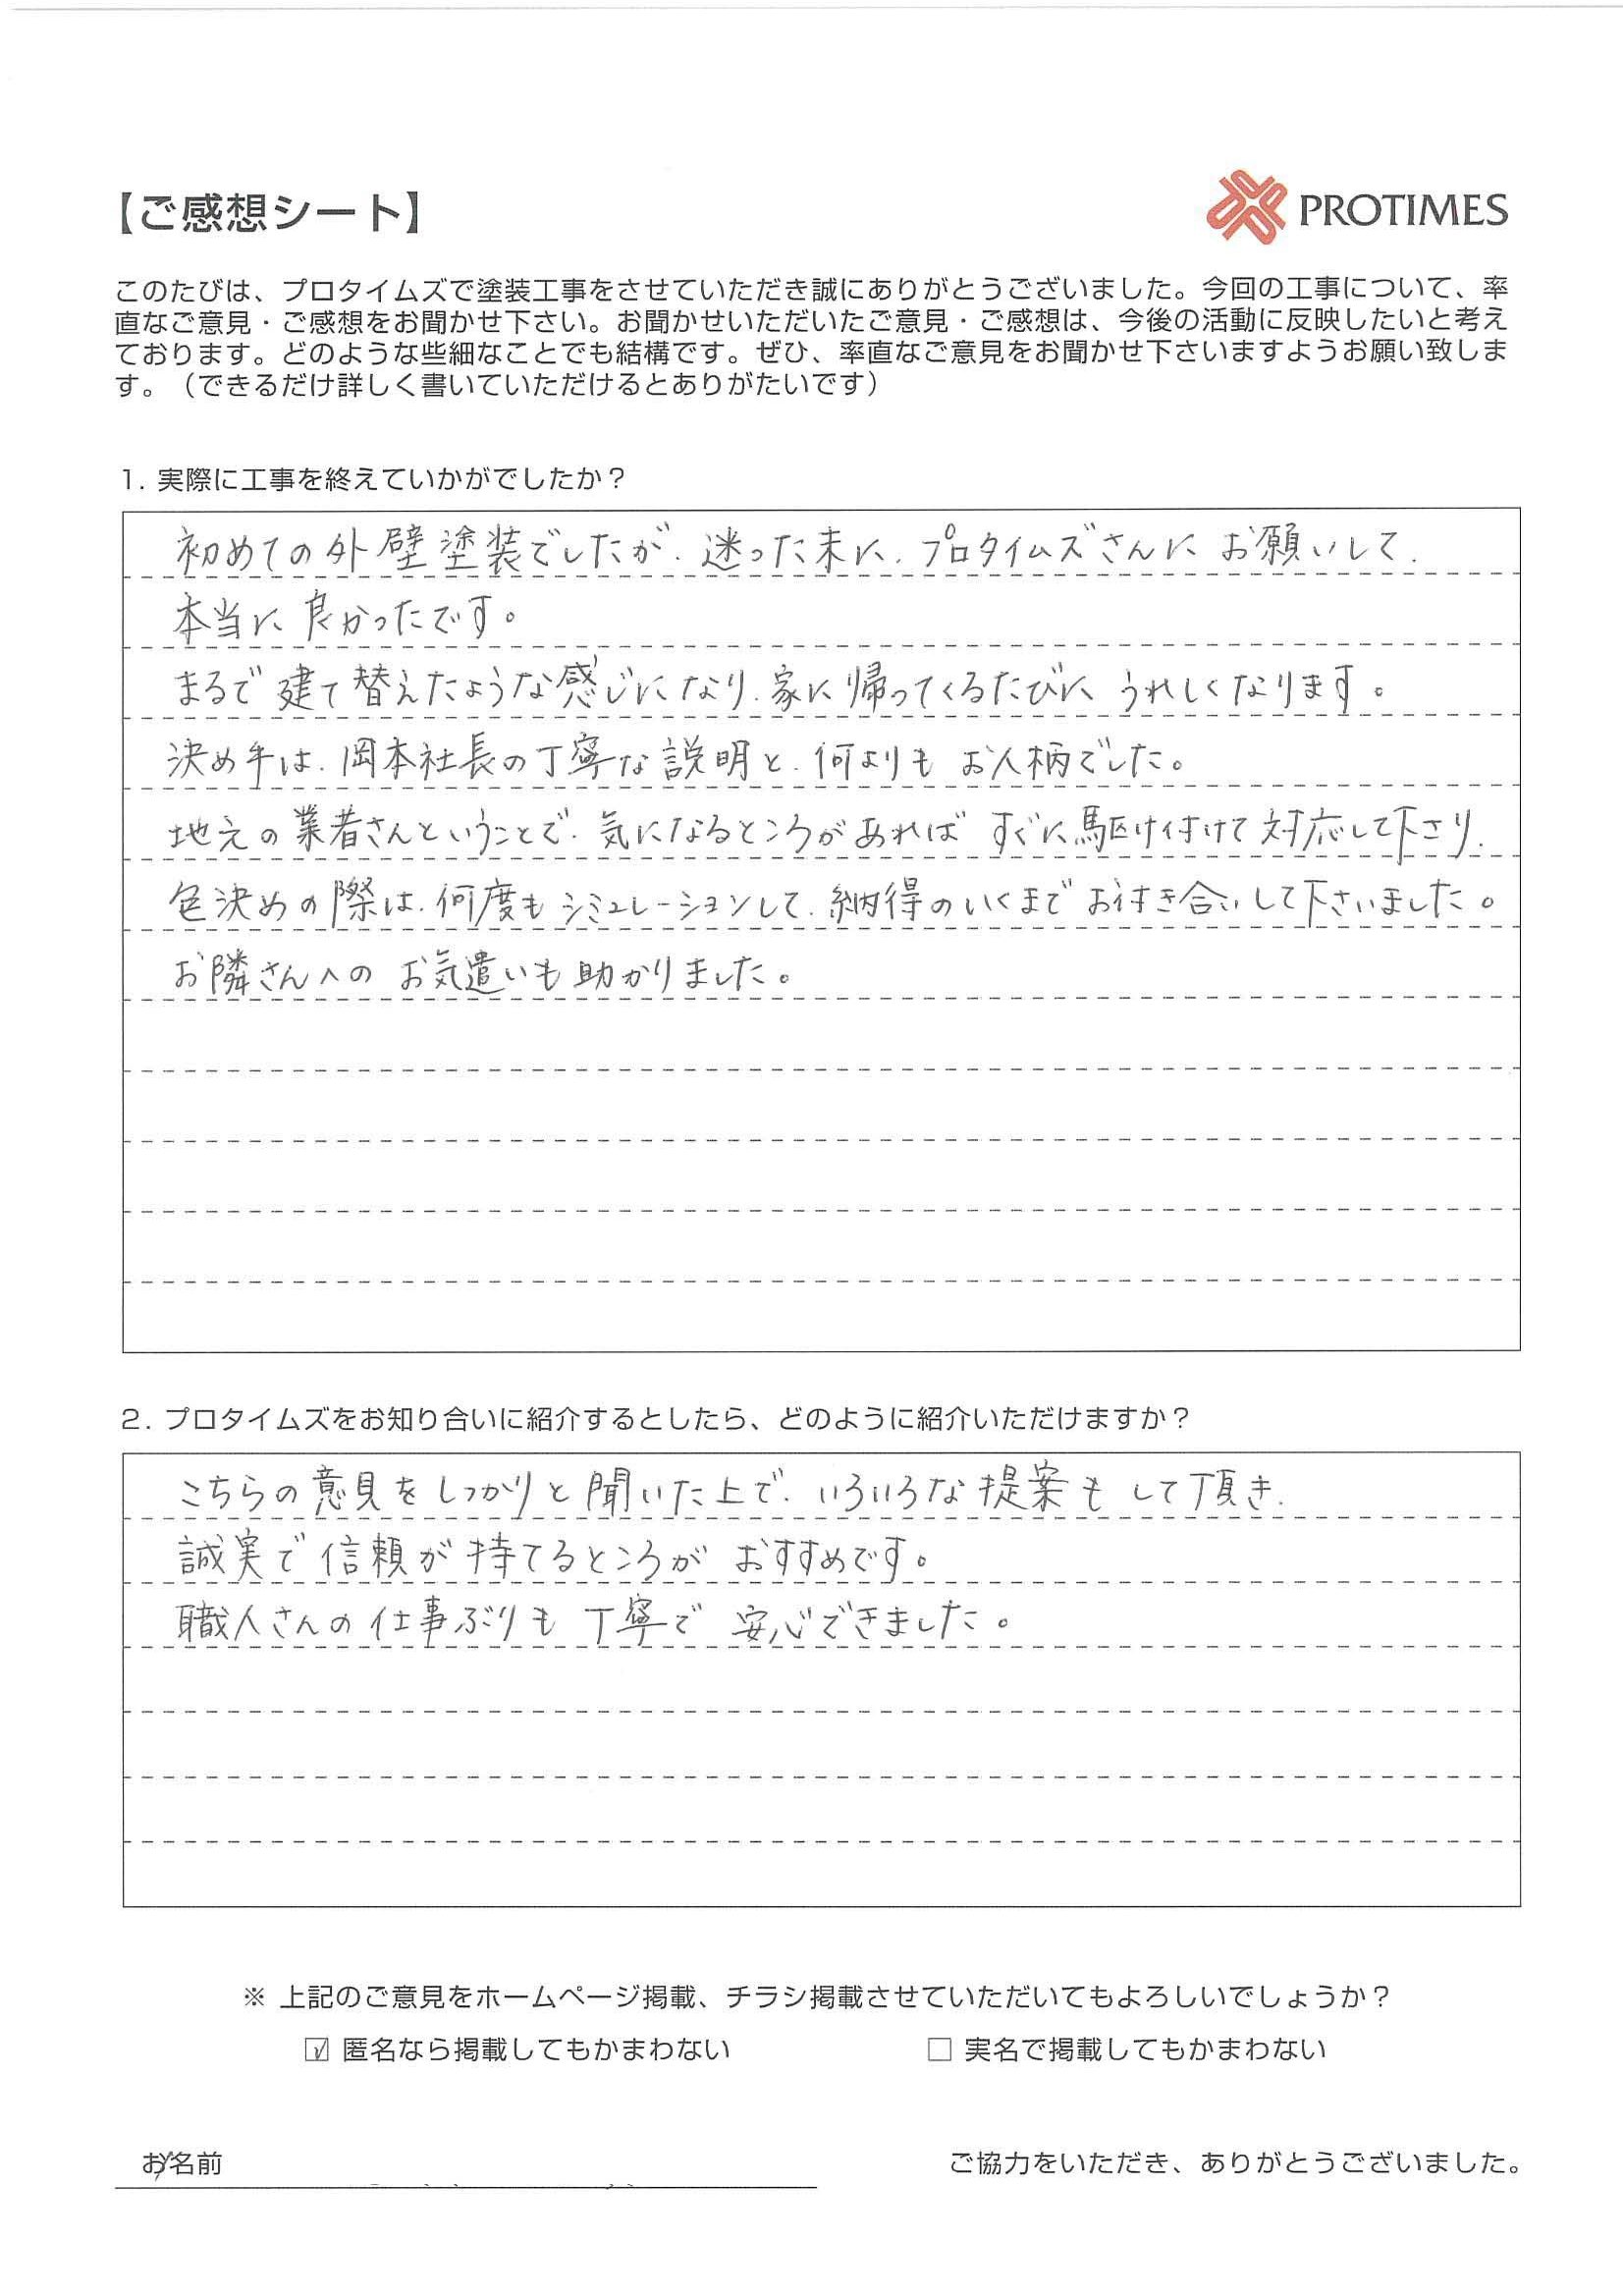 【ご感想シート】
PROTIMES
このたびは、プロタイムズで塗装工事をさせていただき誠にありがとうございました。今回の工事について、率
直なご意見・ご感想をお聞かせ下さい。お聞かせいただいたご意見・ご感想は、今後の活動に反映したいと考え
ております。どのような些細なことでも結構です。ぜひ、率直なご意見をお聞かせ下さいますようお願い致しま
す。（できるだけ詳しく書いていただけるとありがたいです）
1. 実際に工事を終えていかがでしたか？
初めての外壁塗装でしたが、迷った末に、プロタイムズさんにお願いして、
本当に良かったです。
まるで建て替えたような感じになり、家に帰ってくるたびに うれしくなります。
決め手は、岡本社長の丁寧な説明と、何よりも お人柄でした。
地元の業者さんということで、気になるところがあれば すぐに駆け付けて対応して下さり、
色決めの際は、何度もシミュレーションして、納得のいくまでお付き合いして下さいました。
お隣さんへの お気遣いも助かりました。
2. プロタイムズをお知り合いに紹介するとしたら、どのように紹介いただけますか？
こちらの意見をしっかりと聞いた上で、いろいろな提案もして頂き、
誠実で信頼が持てるところが おすすめです。
職人さんの仕事ぶりも 丁寧で 安心できました。
※ 上記のご意見をホームページ掲載、チラシ掲載させていただいてもよろしいでしょうか？
☑ 匿名なら掲載してもかまわない □ 実名で掲載してもかまわない
お名前 ご協力をいただき、ありがとうございました。